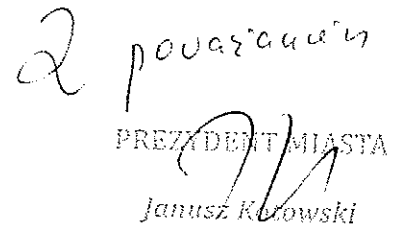 Z poważaniem
PREZYDENT MIASTA
Janusz Kotowski